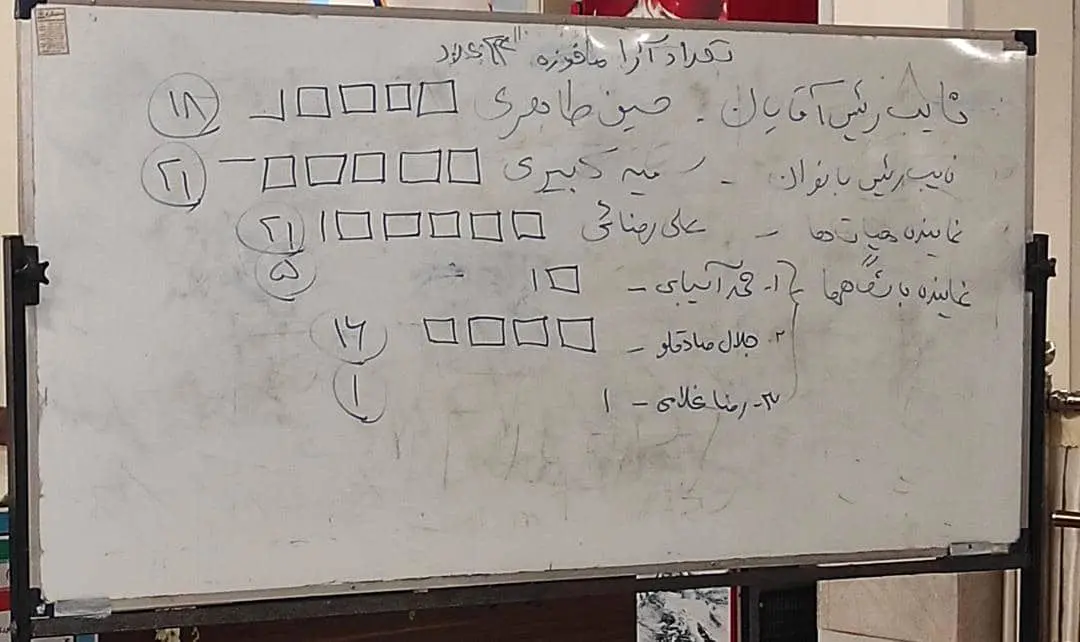 تعداد آرا ماخوذه
نایب رئیس آقایان - حسین طاهری ۱۸
نایب رئیس بانوان - سمیه کبیری ۲۱
نماینده هیات ها - علی رضائی ۲۱
نماینده باشگاهها ۱- محمد آسیابی - ۵
۲- جلال صادقلو - ۱۶
۳- رضا غلامی - ۱ ۱